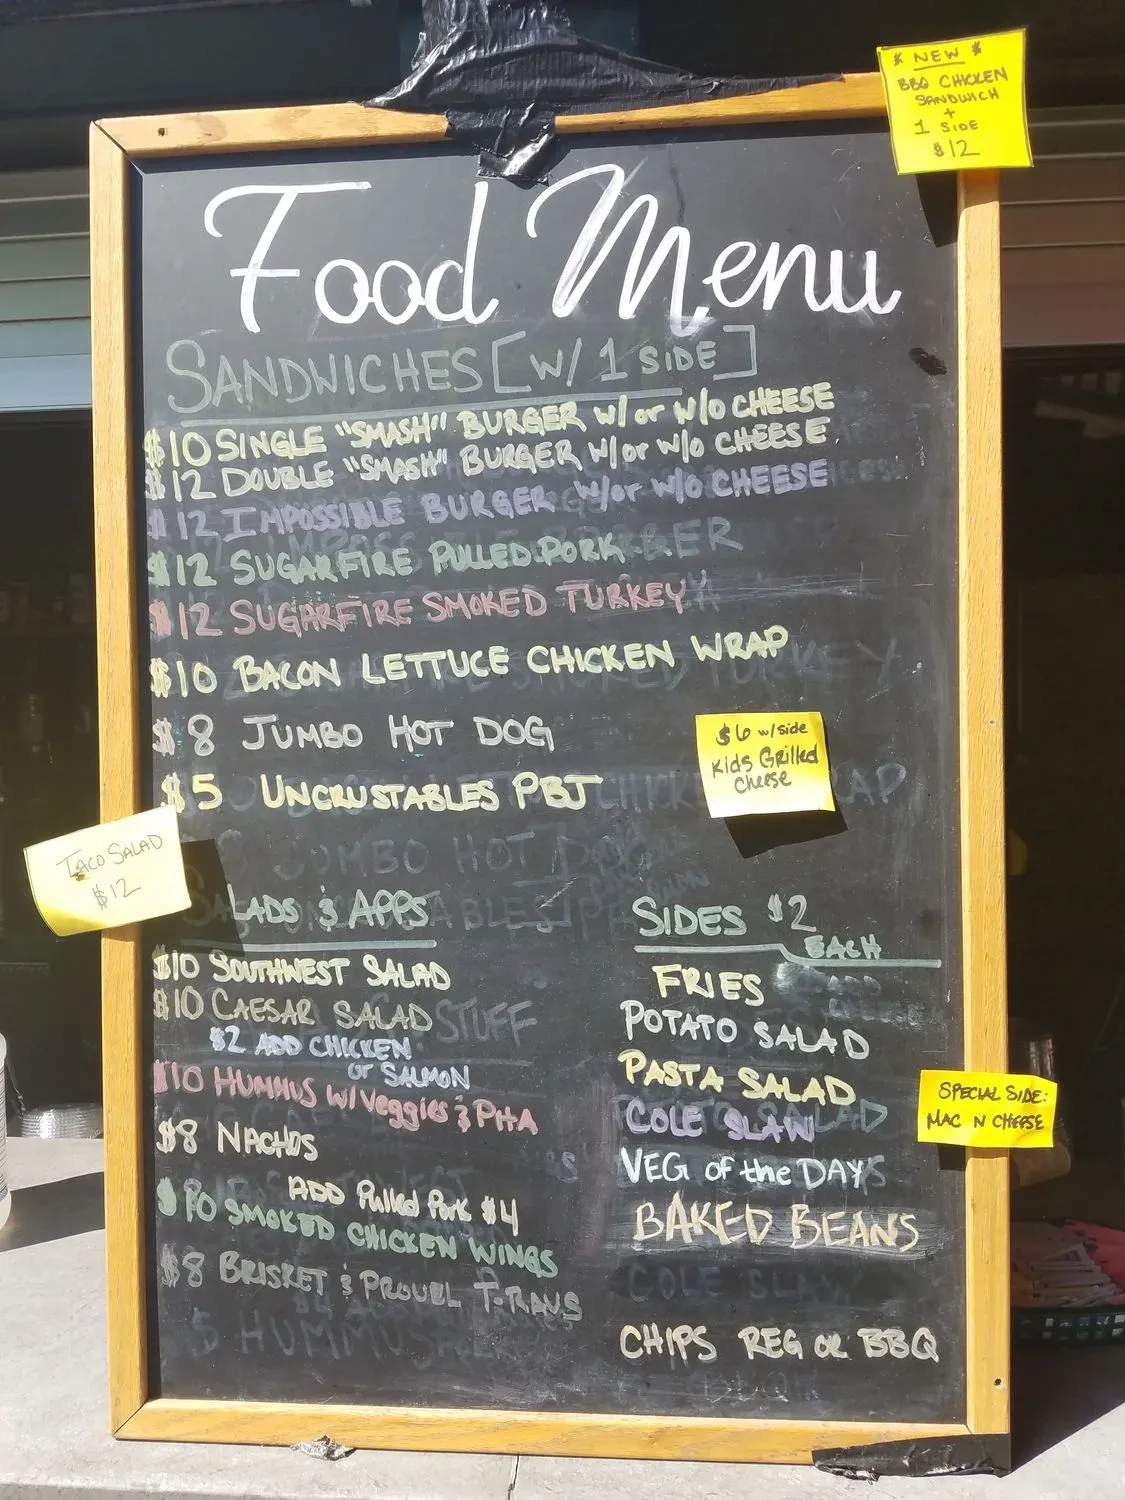 * NEW *
BBQ CHICKEN
SANDWICH
+
1 SIDE
$12
Food Menu
SANDWICHES [W/ 1 SIDE]
$10 SINGLE "SMASH" BURGER W/ or W/O CHEESE
$12 DOUBLE "SMASH" BURGER W/ or W/O CHEESE
$12 IMPOSSIBLE BURGER W/ or W/O CHEESE
$12 SUGARFIRE PULLED PORK
$12 SUGARFIRE SMOKED TURKEY
$10 BACON LETTUCE CHICKEN WRAP
$8 JUMBO HOT DOG
$5 UNCRUSTABLES PBJ
$6 w/side
Kids Grilled
Cheese
TACO SALAD
$12
SALADS & APPS
$10 SOUTHWEST SALAD
$10 CAESAR SALAD
$2 ADD CHICKEN
or SALMON
$10 HUMMUS W/ Veggies & PITA
$8 NACHOS
ADD Pulled Pork $4
$10 SMOKED CHICKEN WINGS
$8 BRISKET & PROVEL T-RAVS
SIDES $2
EACH
FRIES
POTATO SALAD
PASTA SALAD
COLE SLAW
VEG of the DAY
BAKED BEANS
CHIPS REG or BBQ
SPECIAL SIDE:
MAC N CHEESE